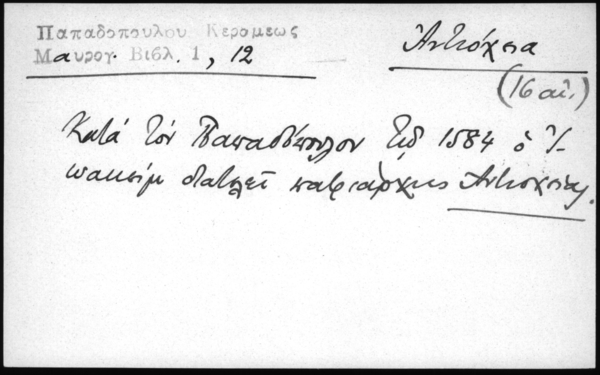 Παπαδοπουλου Κερομεως
Μαυρογ. Βιβλ. 1, 12
Ἀντιόχεια
(16 αἰ.)
Κατά τόν Παπαδόπουλον τῷ 1584 ὁ Ἰ-
ωακείμ διατελεῖ πατριάρχης Ἀντιοχείας.